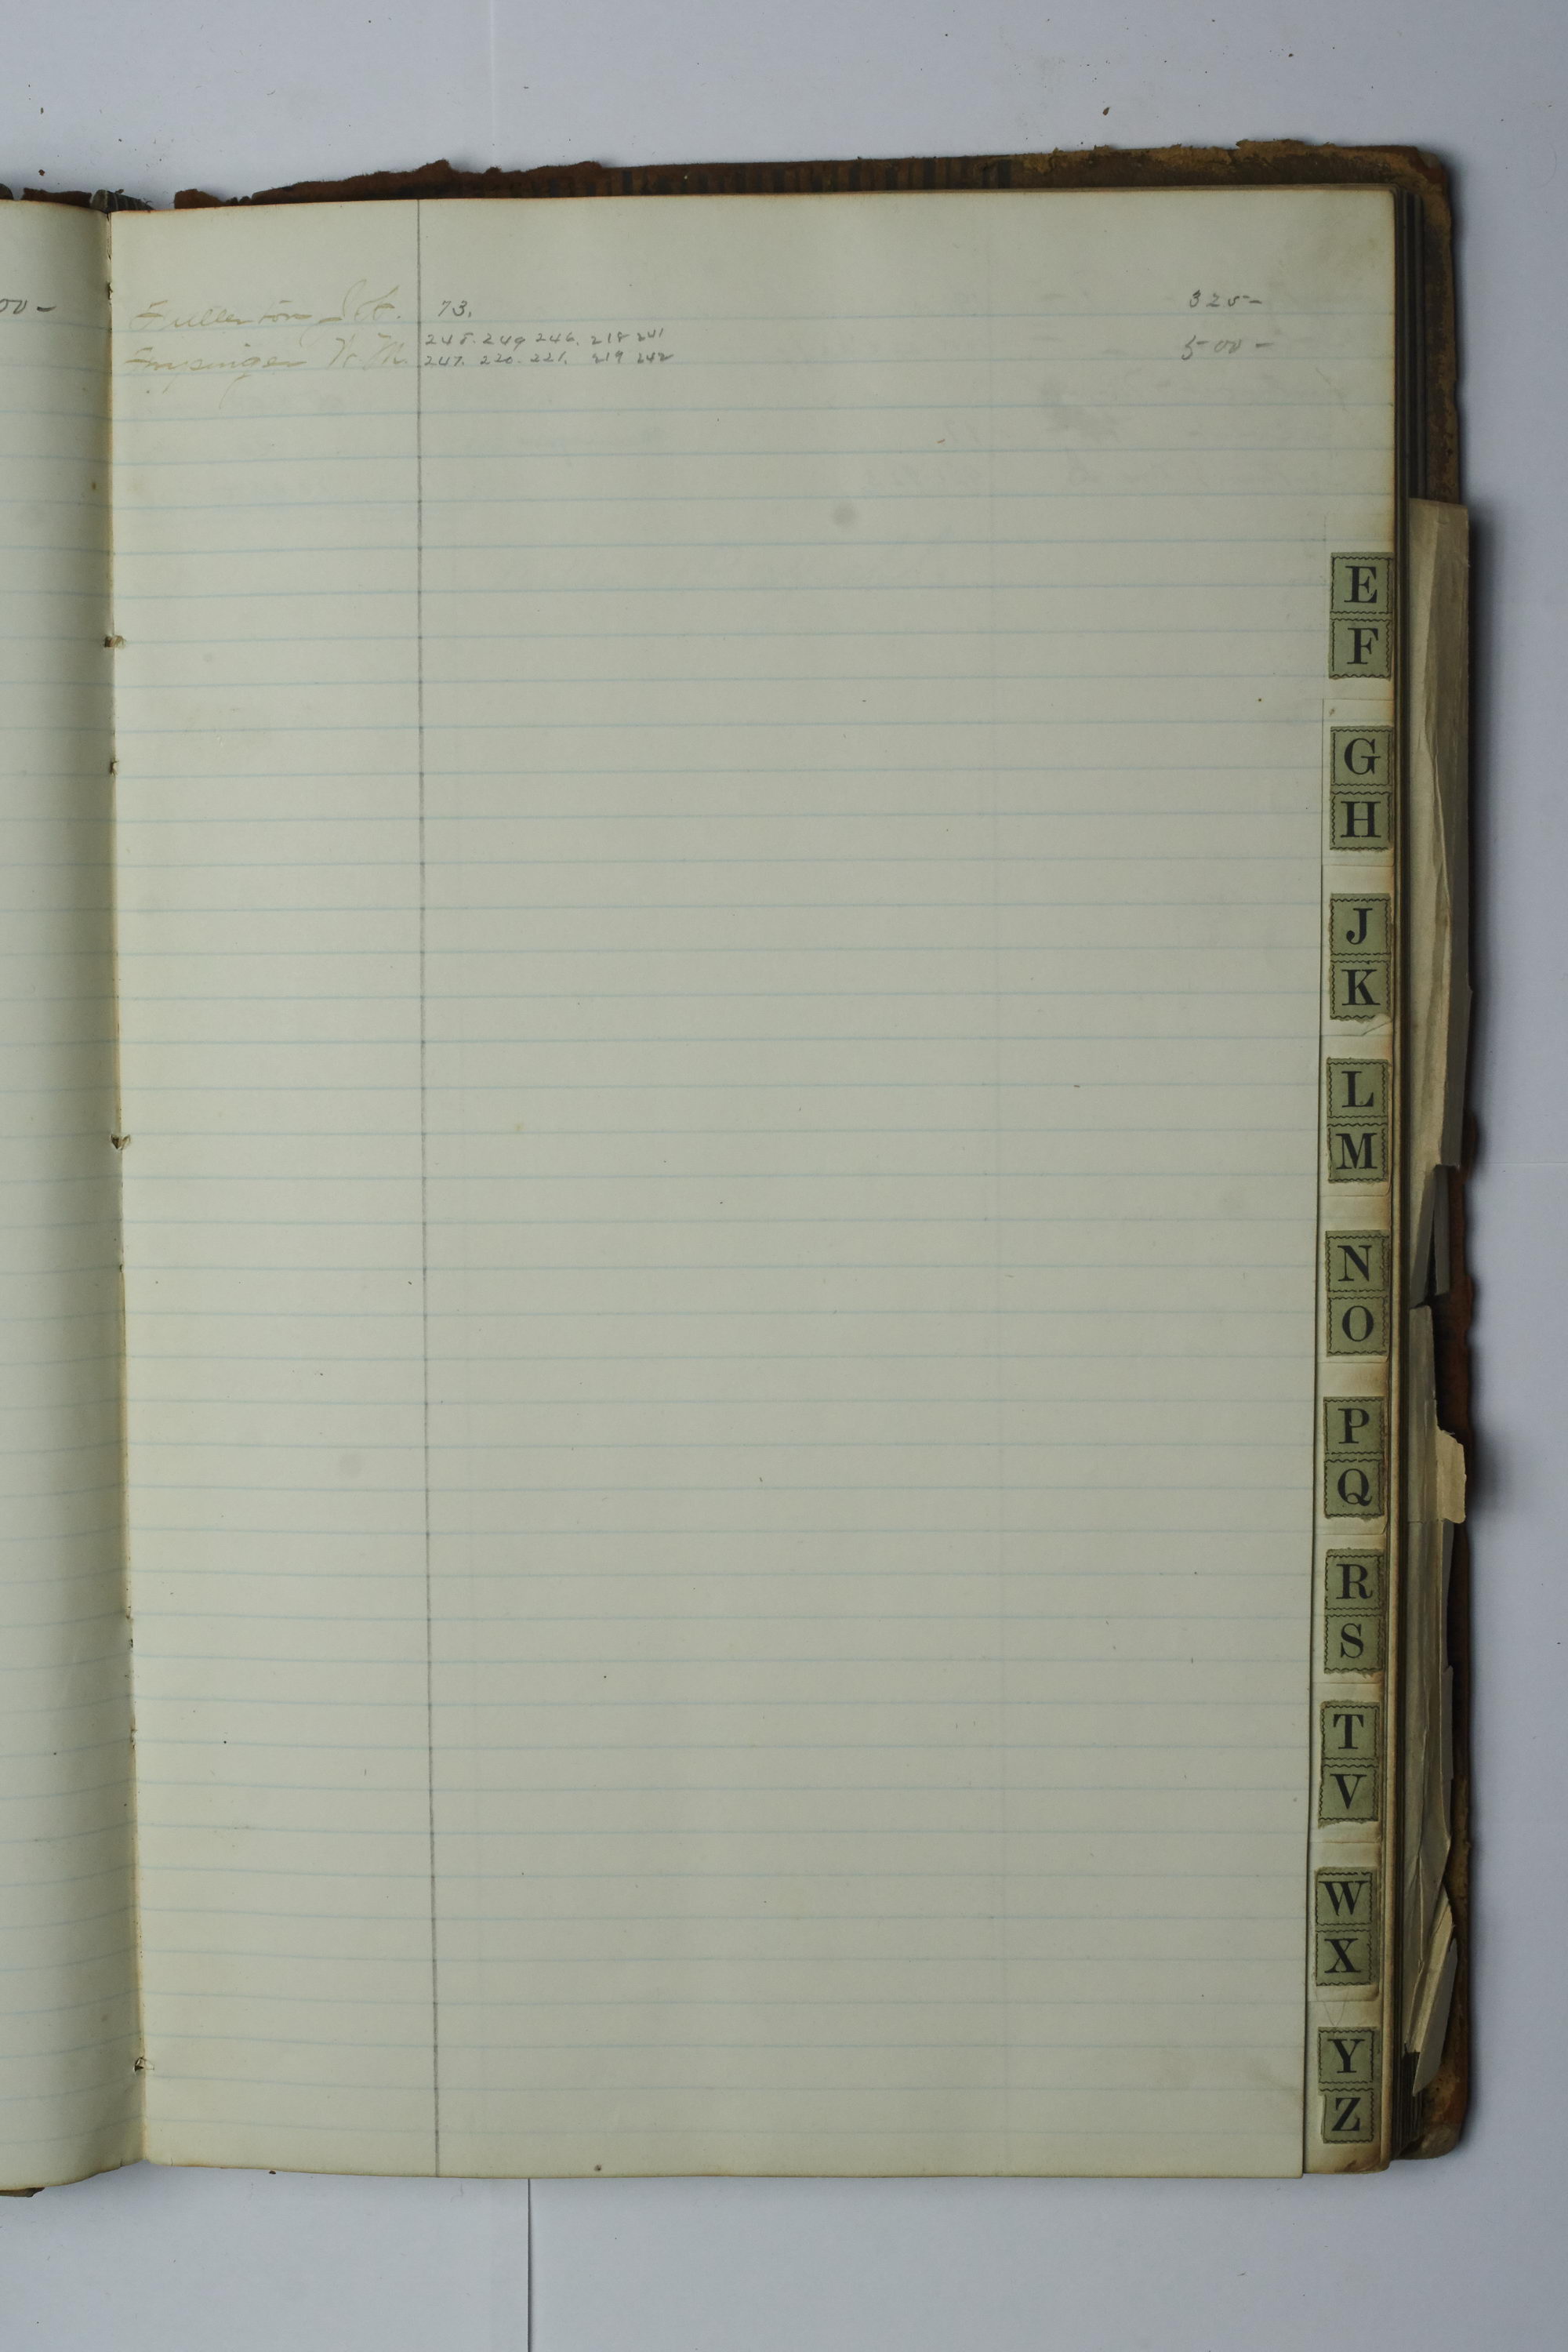 00-
Fullerton J. A. 73. 325-
245. 249 246. 218 241
W. M. 247. 220. 221. 219 242 500-
E
F
G
H
J
K
L
M
N
O
P
Q
R
S
T
V
W
X
Y
Z